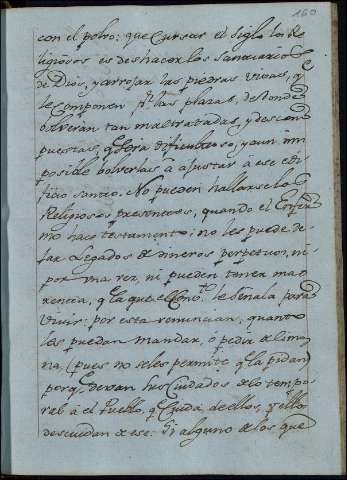 160
con el polvo: que cursar el siglo los Re
ligiosos es deshacer los santuarios
de Dios, y arrojar las piedras vivas, q̃
le componen pr. las plazas, de donde
bolverán tan maltratadas, y descom
puestas, q̃ será dificultoso, y aun im
posible bolverlas à ajustar à ese edi
ficio santo. No pueden hallarse los
Religiosos presentes, quando el Enfer
mo hace testamento; no les puede de
jar Legados de dineros perpetuos, ni
por una vez, ni pueden tener mas
herencia, q̃ la que el Conto. le señala para
vivir: por esta renuncian, quanto
les puedan mandar, ò pedir de limos
na, (pues no seles permite q̃ la pidan)
porq̃ dexan los cuidados de lo tempo
ral à el Pueblo, q̃ cuida de ellos, y ellos
descuidan de ese. Si alguno de los que